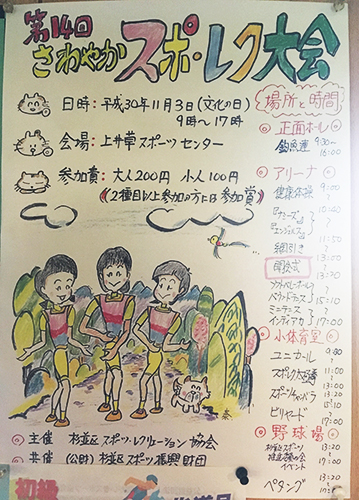 第14回
さわやか スポ・レク大会
日時：平成30年11月3日(文化の日)
9時〜17時
会場：上井草スポーツセンター
参加費：大人200円 小人100円
(2種目以上参加の方には参加賞)
主催 杉並区スポーツ・レクリエーション協会
共催 (公財)杉並区スポーツ振興財団
場所と時間
正面ホール
9:30〜
16:00
アリーナ
健康体操
綱引き
開会式
ミニテニス
インディアカ 17:00
小体育堂
ユニカール
スポーツチャンバラ
ビリヤード 17:00
野球場
イベント
ペタンク
初級